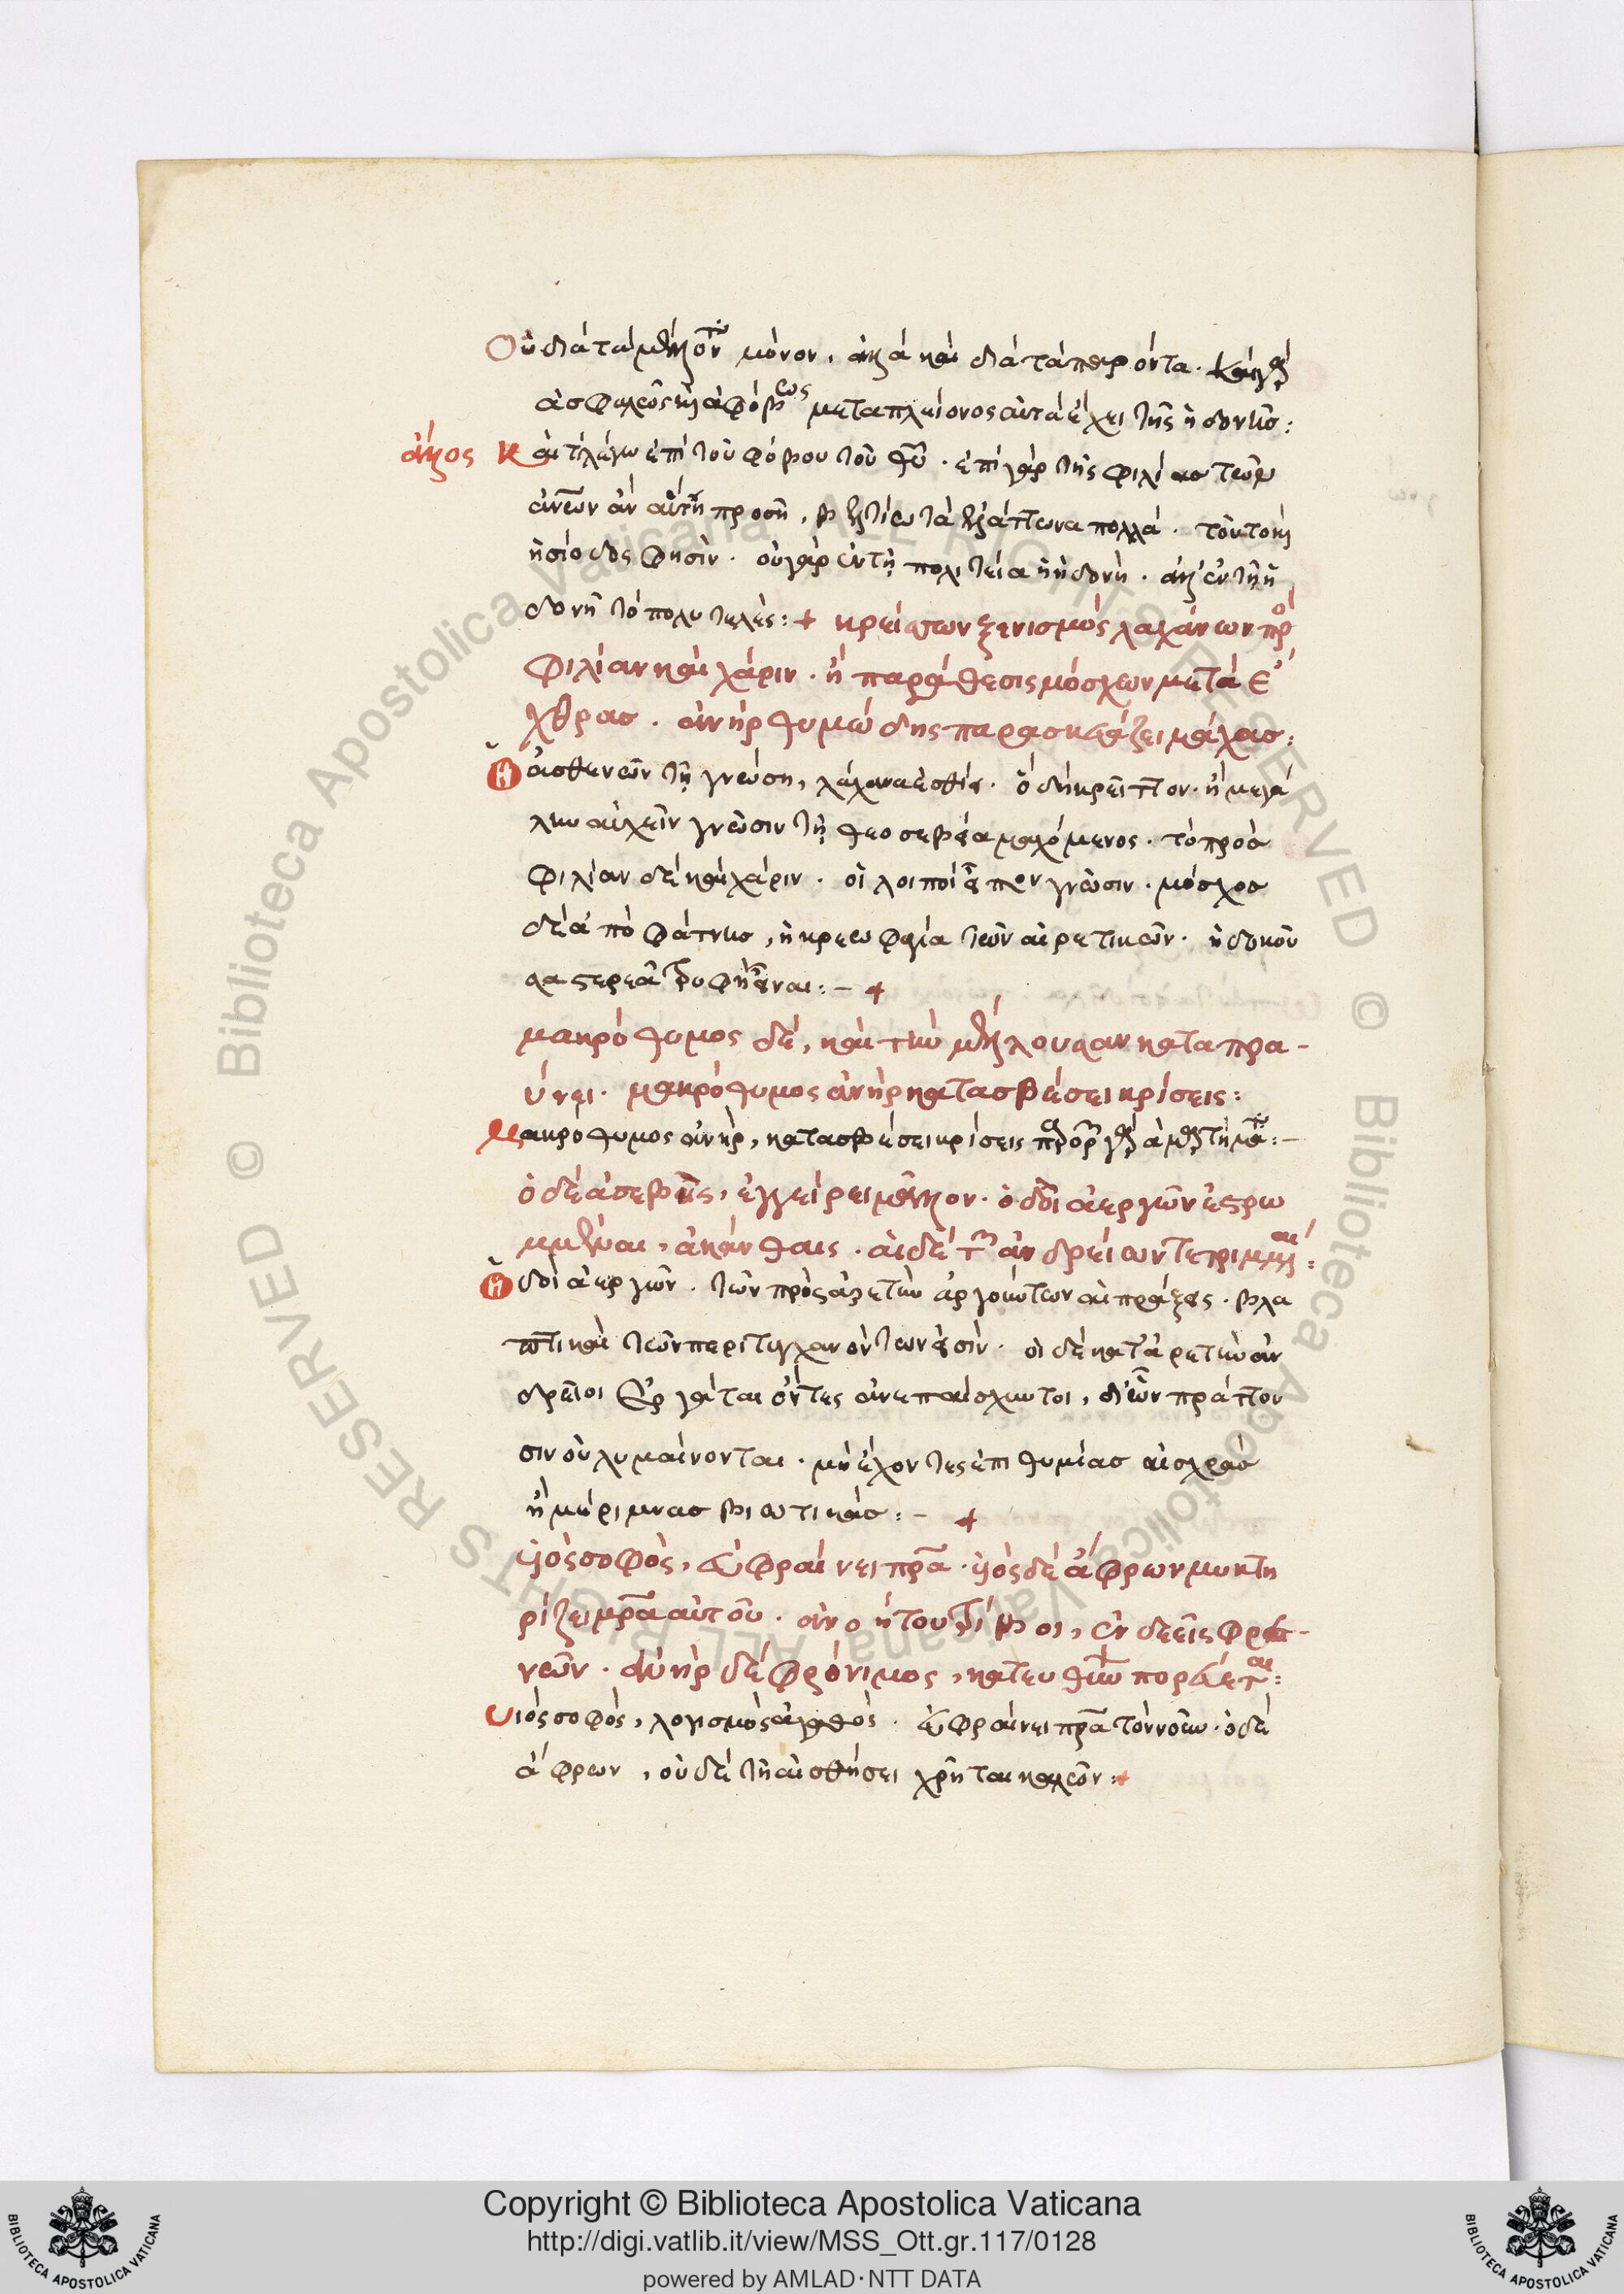 Οὐ διὰ τὰ μέλλοντα μόνον, ἀλλὰ καὶ διὰ τὰ παρόντα. καὶ γὰρ
ἀσφαλῶς καὶ ἀφόβως μετὰ πλείονος αὐτὰ ἔχει τῆς ἡδονῆς:
ἄλλος Καὶ τί λέγω ἐπὶ τοῦ φόβου τοῦ θυ. ἐπὶ γὰρ τῆς φιλίας τῶν
ἀνων ἂν αὕτη προσῇ, βελτίω τὰ ἐλάττωνα πολλά. τοῦτο καὶ
ἡσίοδος φησίν. οὐ γὰρ ἐν τῇ πολιτεία ἡ ἡδονή. ἀλλ' ἐν τῇ ἡ
δονῇ τὸ πολυτελές: + κρείσσων ξενισμὸς λαχάνων πρὸς
φιλίαν καὶ χάριν. ἢ παράθεσις μόσχων μετὰ ἔ
χθρας. ἀνὴρ θυμώδης παρασκευάζει μάχας:
Ὁ ἀσθενῶν τῇ γνώσῃ, λάχανα ἐσθίει. ὃ δὴ κρεῖττον. ἢ μεγά
λην αὐχεῖν γνῶσιν τῇ θεοσεβεία μαχόμενος. τὸ πρὸς
φιλίαν δὲ καὶ χάριν. οἱ λοιποὶ εἶπον γνῶσιν. μόσχος
δὲ ἀπὸ φάτνης, ἡ κρεωφαγία τῶν αἱρετικῶν. ἡ δοκοῦ
σα στερεὰ τροφὴ εἶναι: – +
μακρόθυμος δὲ, καὶ τὴν μέλλουσαν καταπρα-
ύνει. μακρόθυμος ἀνὴρ κατασβέσει κρίσεις:
Μακρόθυμος ἀνὴρ, κατασβέσει κρίσεις γὰρ ἁμαρτήματα: –
ὁ δὲ ἀσεβὴς, ἐγείρει μᾶλλον. ὁδοὶ ἀεργῶν ἐστρω
μμέναι, ἀκάνθαις. αἱ δὲ τῶν ἀνδρείων τετριμμέναι:
Ὁδοὶ ἀεργῶν. τῶν πρὸς ἀρετὴν ἀργούντων αἱ πράξεις. βλα
πτικαὶ τῶν περιτυγχανόντων εἰσίν. οἱ δὲ κατ' ἀρετὴν ἀν
δρεῖοι ἐργάται ὄντες ἀνεπαίσχυντοι, δι' ὧν πράττου
σιν οὐ λυμαίνονται. μὴ ἔχοντες ἐπιθυμίας αἰσχρὰς
ἢ μερίμνας βιωτικάς: – +
υἱὸς σοφὸς, εὐφραίνει πρα. υἱὸς δὲ ἄφρων μυκτη
ρίζει μρα αὐτοῦ. ἀνοήτου τρίβοι, ἐνδεεῖς φρε-
νῶν. ἀνὴρ δὲ φρόνιμος, κατευθύνων πορεύεται:
Υἱὸς σοφὸς, λογισμὸς ἀγαθός. εὐφραίνει πρα τὸν νοῦν. ὁ δὲ
ἄφρων, οὐδὲ τῇ αἰσθήσει χρῆται καλῶν: +
Copyright © Biblioteca Apostolica Vaticana
http://digi.vatlib.it/view/MSS_Ott.gr.117/0128
powered by AMLAD·NTT DATA